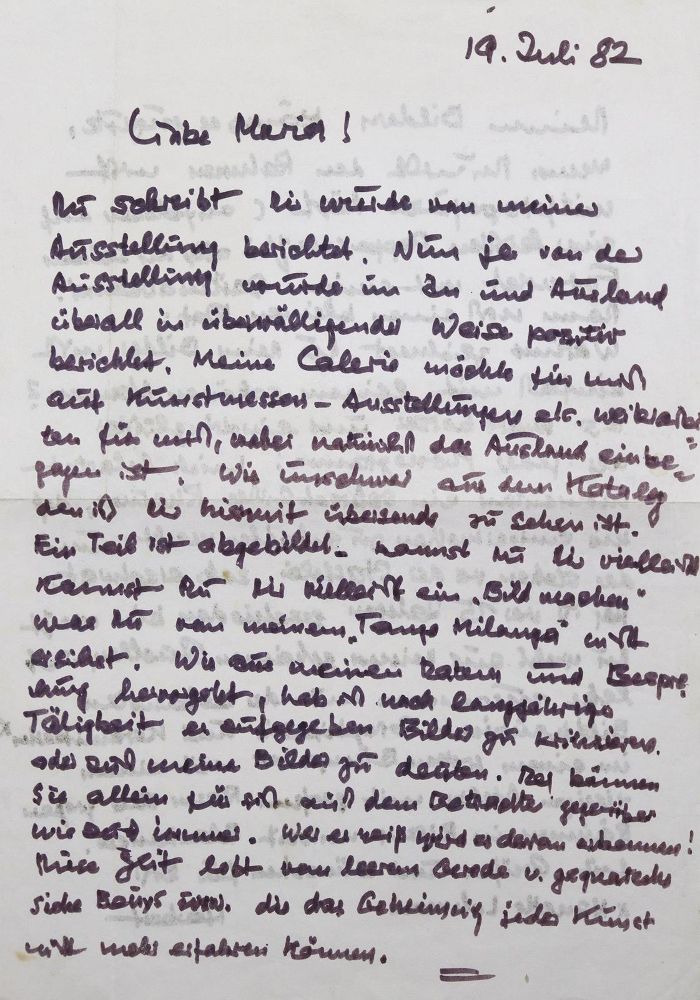 19. Juli 82
Liebe Maria!
Du schreibst Dir würde von meiner
Ausstellung berichtet. Nun ja von der
Ausstellung wurde im In und Ausland
überall in überwältigender Weise positiv
berichtet. Meine Galerie möchte für mich
auf Kunstmessen - Ausstellungen etc.
ten für mich, wobei natürlich das Ausland einbe=
gegen ist. Wie unschwer aus dem Katalog
den ich Dir hiermit übersende zu sehen ist.
Ein Teil ist abgebildet. kannst Du Dir vielleicht
Kannst Du Dir vielleicht ein „Bild machen"
was Du von meinem „Tango Milonga" nicht
siehst. Wie aus meinen Daten und Bespre
ung hervorgeht, hab ich nach langjähriger
Tätigkeit es aufgegeben Bilder zu kritisieren.
oder auch meine Bilder zu deuten. Das können
Sie allein für sich auch dem Betrachter gegenüber
wie auch immer. Wer es weiß wird es daran erkennen!
Diese Zeit lebt vom leeren Gerede u.
siehe Beuys usw. die das Geheimnis jeder Kunst
nicht mehr erfahren können.